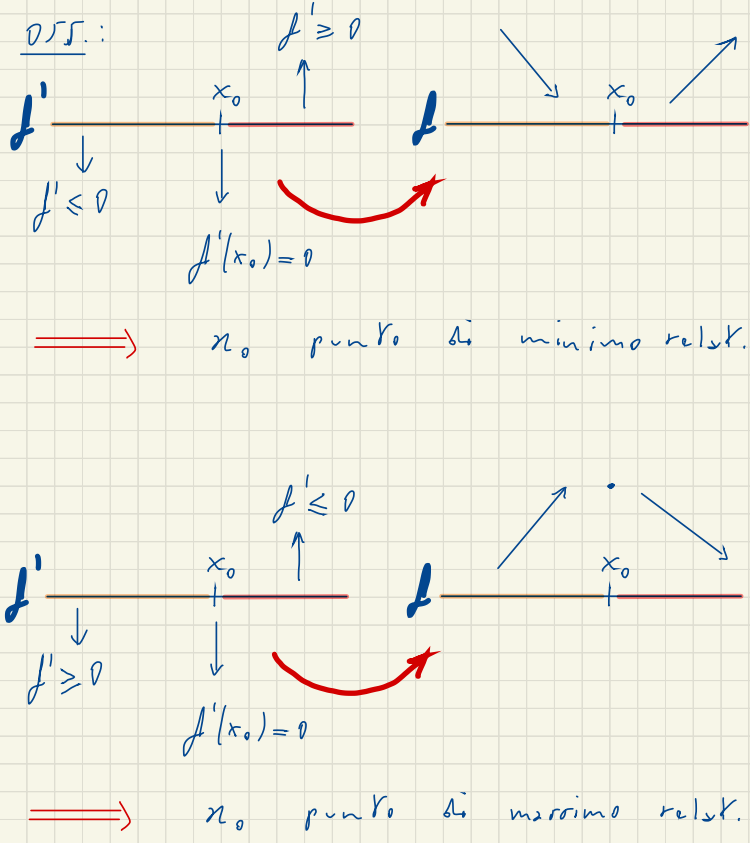 OSS.:
f' ≥ 0
x₀ x₀
f' f
f' ≤ 0
f'(x₀) = 0
⟹ x₀ punto di minimo relat.
f' ≤ 0
x₀ x₀
f' f
f' ≥ 0
f'(x₀) = 0
⟹ x₀ punto di massimo relat.